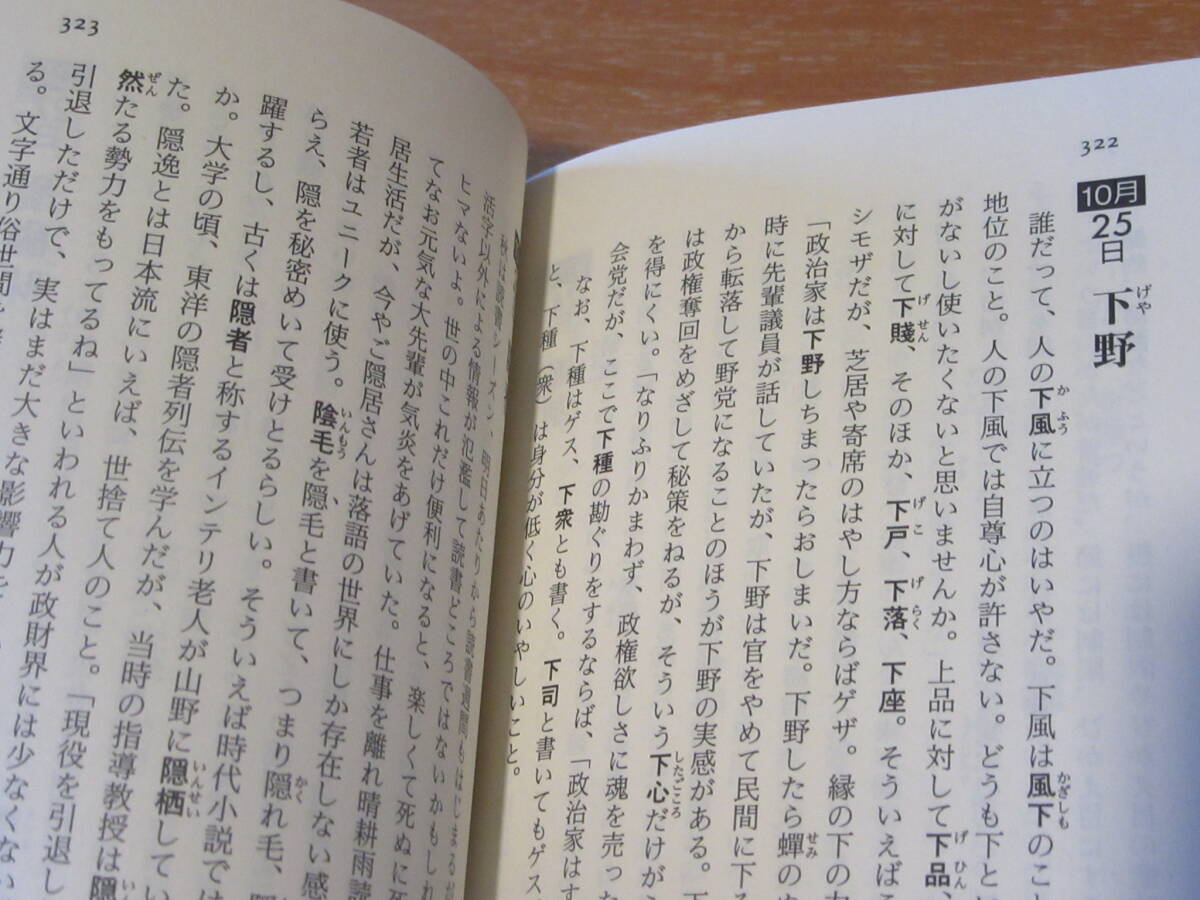 322
10月
25日
下野
げや
誰だって、人の下風に立つのはいやだ。下風は風下のこ
地位のこと。人の下風では自尊心が許さない。どうも下とい
がないし使いたくないと思いませんか。上品に対して下品、
に対して下賤、そのほか、下戸、下落、下座。そういえば
シモザだが、芝居や寄席のはやし方ならばゲザ。縁の下の力
「政治家は下野しちまったらおしまいだ。下野したら蟬の
時に先輩議員が話していたが、下野は官をやめて民間に下る
から転落して野党になることのほうが下野の実感がある。
は政権奪回をめざして秘策をねるが、そういう下心だけが
を得にくい。「なりふりかまわず、政権欲しさに魂を売っ
会党だが、ここで下種の勘ぐりをするならば、「政治家は
なお、下種はゲス、下衆とも書く。下司と書いてもゲス
と、下種（衆）は身分が低く心のいやしいこと。
323
秋は読書シーズン、明日あたりから読書週間もはじまるが
活字以外による情報が氾濫して読書どころではないかもしれ
ヒマないよ。世の中これだけ便利になると、楽しくて死ぬに死
てなお元気な大先輩が気炎をあげていた。仕事を離れ晴耕雨読
居生活だが、今やご隠居さんは落語の世界にしか存在しない感
若者はユニークに使う。陰毛を隠毛と書いて、つまり隠れ毛、
らえ、隠を秘密めいて受けとるらしい。そういえば時代小説で
躍するし、古くは隠者と称するインテリ老人が山野に隠栖してい
か。大学の頃、東洋の隠者列伝を学んだが、当時の指導教授は隠
た。隠逸とは日本流にいえば、世捨て人のこと。「現役を引退し
然たる勢力をもってるね」といわれる人が政財界には少なくない
引退しただけで、実はまだ大きな影響力を
る。文字通り俗世間を